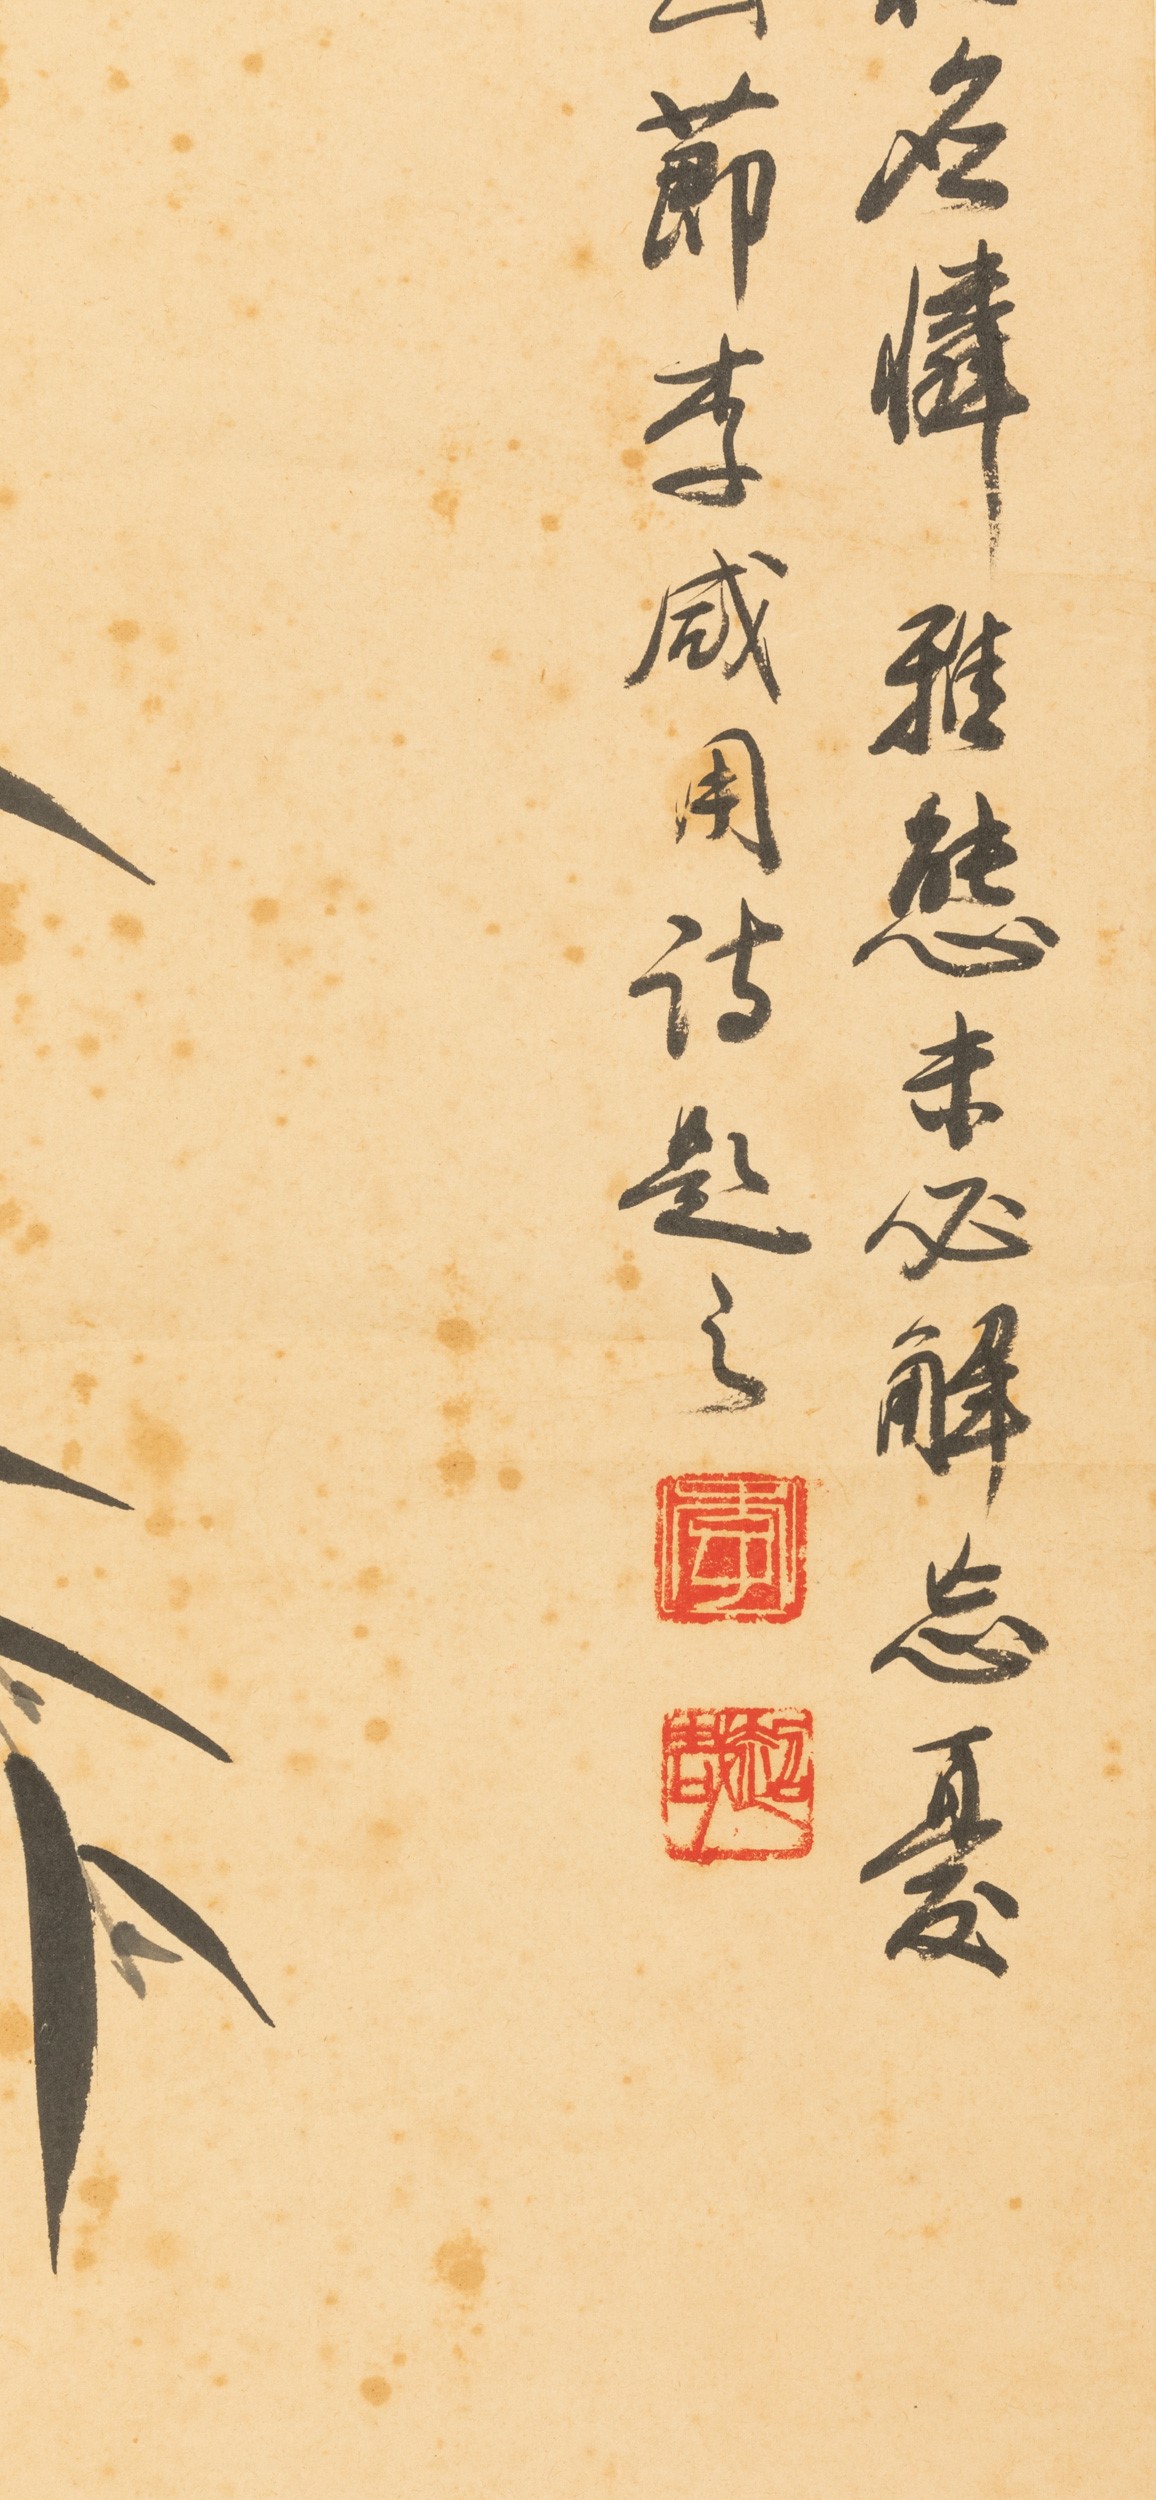 名憐雅態未必解忘憂
節李咸用詩題之